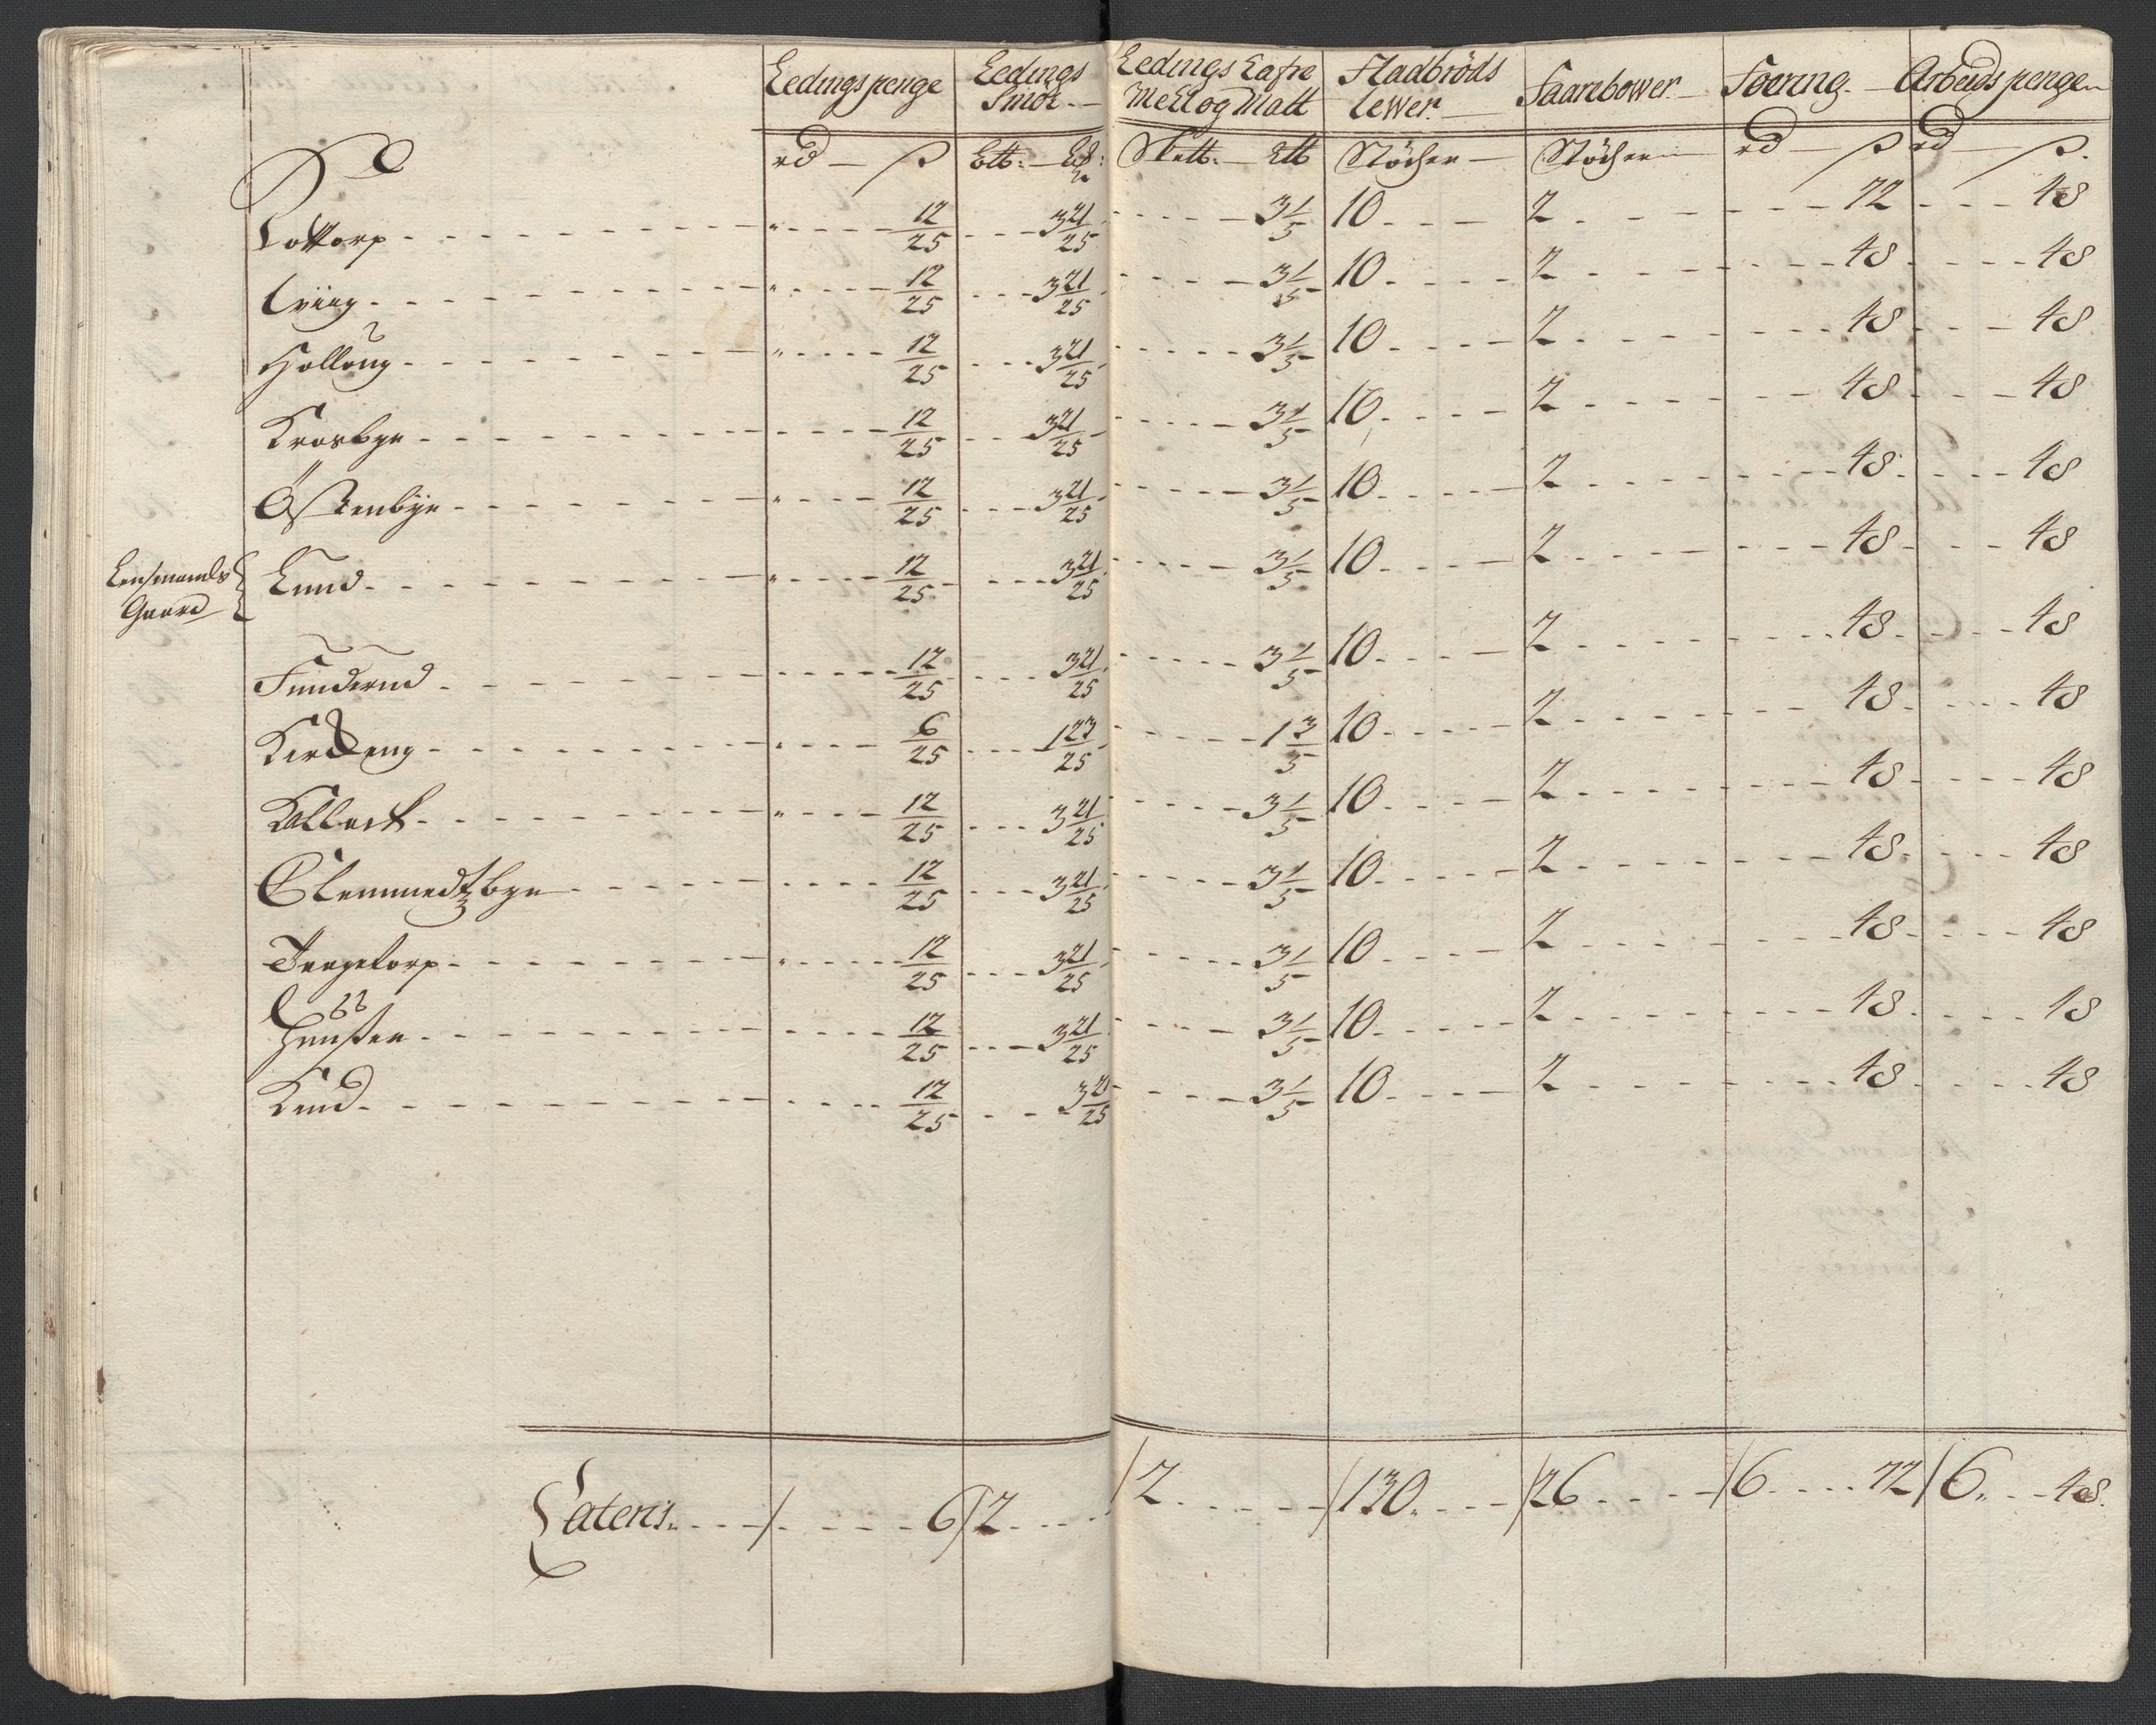 Ledingspenge Ledings Smör. Ledings Lafre Meel og Malt Fladbröds Lewer. Faarebower. Foering. Arbeids penge
rd ß Lttb: Skttb. Lttb Stöcher Stöcher rd ß rd ß.
Lottorp 12/25 3 21/25 3 1/5 10 2 72 48
12/25 3 21/25 3 1/5 10 2 48 48
Hollung 12/25 3 21/25 3 1/5 10 2 48 48
Krosbye 12/25 3 21/25 3 1/5 10 2 48 48
Östenbÿe 12/25 3 21/25 3 1/5 10 2 48 48
Lensmands Gaard Lund 12/25 3 21/25 3 1/5 10 2 48 48
12/25 3 21/25 3 1/5 10 2 48 48
Kirckeng 6/25 1 23/25 1 3/5 10 2 48 48
Kolbech 12/25 3 21/25 3 1/5 10 2 48 48
Clemmedtzbye 12/25 3 21/25 3 1/5 10 2 48 48
Ingetorp 12/25 3 21/25 3 1/5 10 2 48 48
12/25 3 21/25 3 1/5 10 2 48 48
12/25 3 21/25 3 1/5 10 2 48 48
Lateris. 6 2 2 130 26 6 72 6 48.